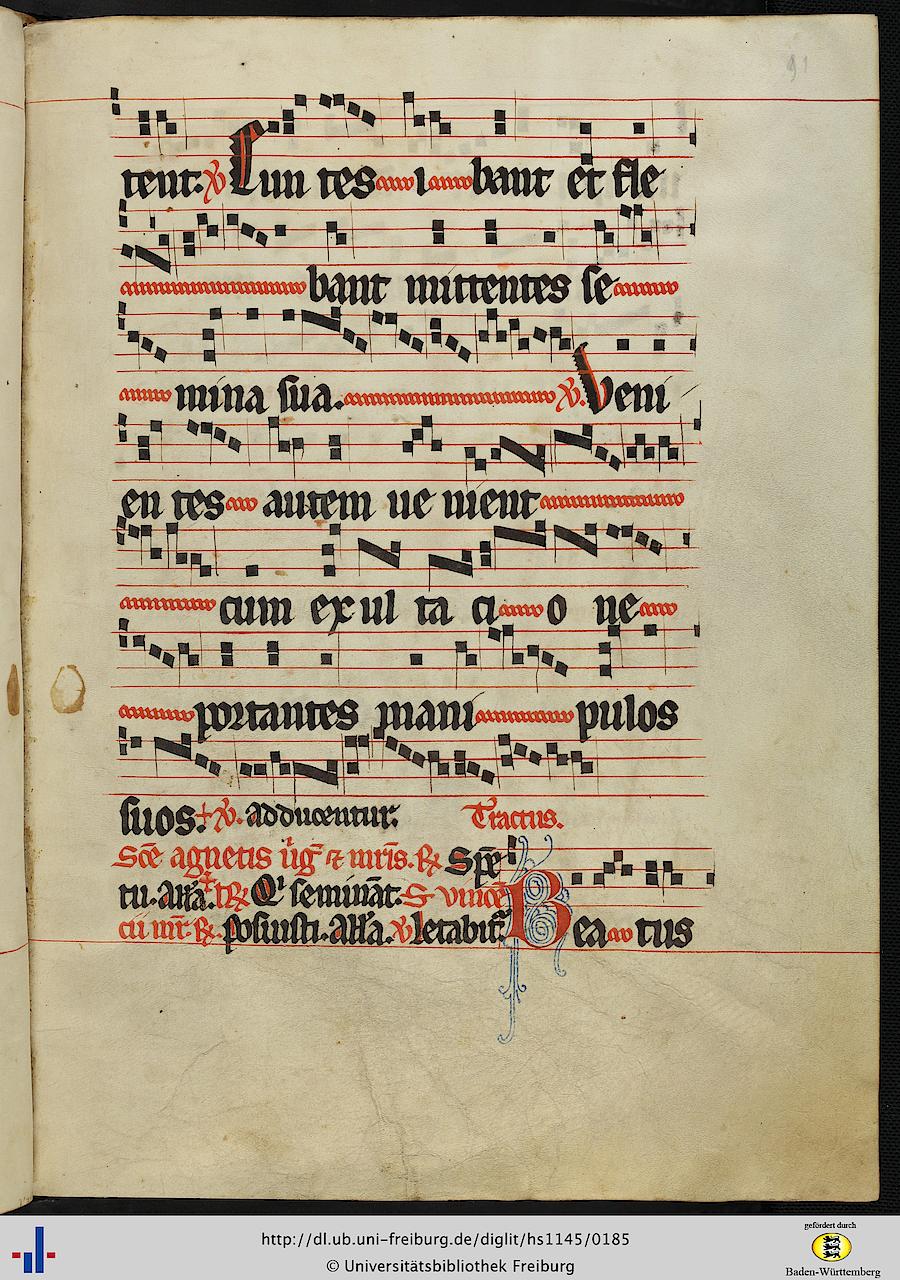 91
tent. ℣ Eun tes i bant et fle
bant mittentes se
mina sua. ℣. Veni
en tes autem ue nient
cum ex ul ta ci o ne
portantes mani pulos
suos. + ℣. adducentur. Tractus.
Sc̄e agnetis ūg̃ ⁊ mr̄is. ℟ Spē
tu. Aɫɫa. Tʀ Qi seminãt. S vincē
cii mr̄. ℟. posuisti. Aɫɫa. ℣ letabit᷑ Bea tus
http://dl.ub.uni-freiburg.de/diglit/hs1145/0185
© Universitätsbibliothek Freiburg
gefördert durch
Baden-Württemberg